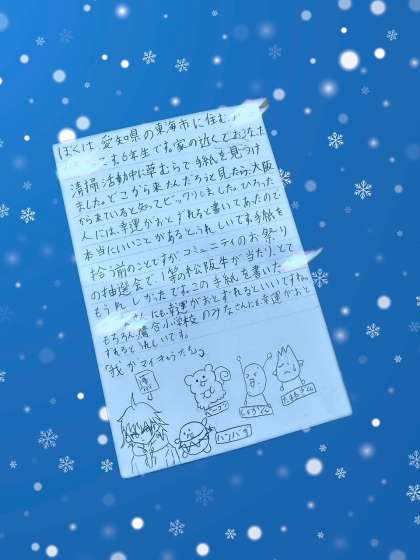 ぼくは、愛知県の東海市に住む
6年生です。家の近くでおこなった
清掃活動中に草むらで手紙を見つけ
ました。どこから来たんだろうと見たら、大阪
から来ていると知ってビックリしました。ひろった
人には、幸運がおとずれると書いてあったので
本当にいいことがあるとうれしいです。手紙を
拾う前のことですが、コミュニティのお祭り
の抽選会で、1等の松阪牛が当たり、とて
もうれしかったです。この手紙を書いた
にも幸運がおとずれるといいですね。
もちろん、小学校のみなさんにも幸運がおと
ずれるとうれしいです。
「我がマイ
しょうくん
ハンパチ